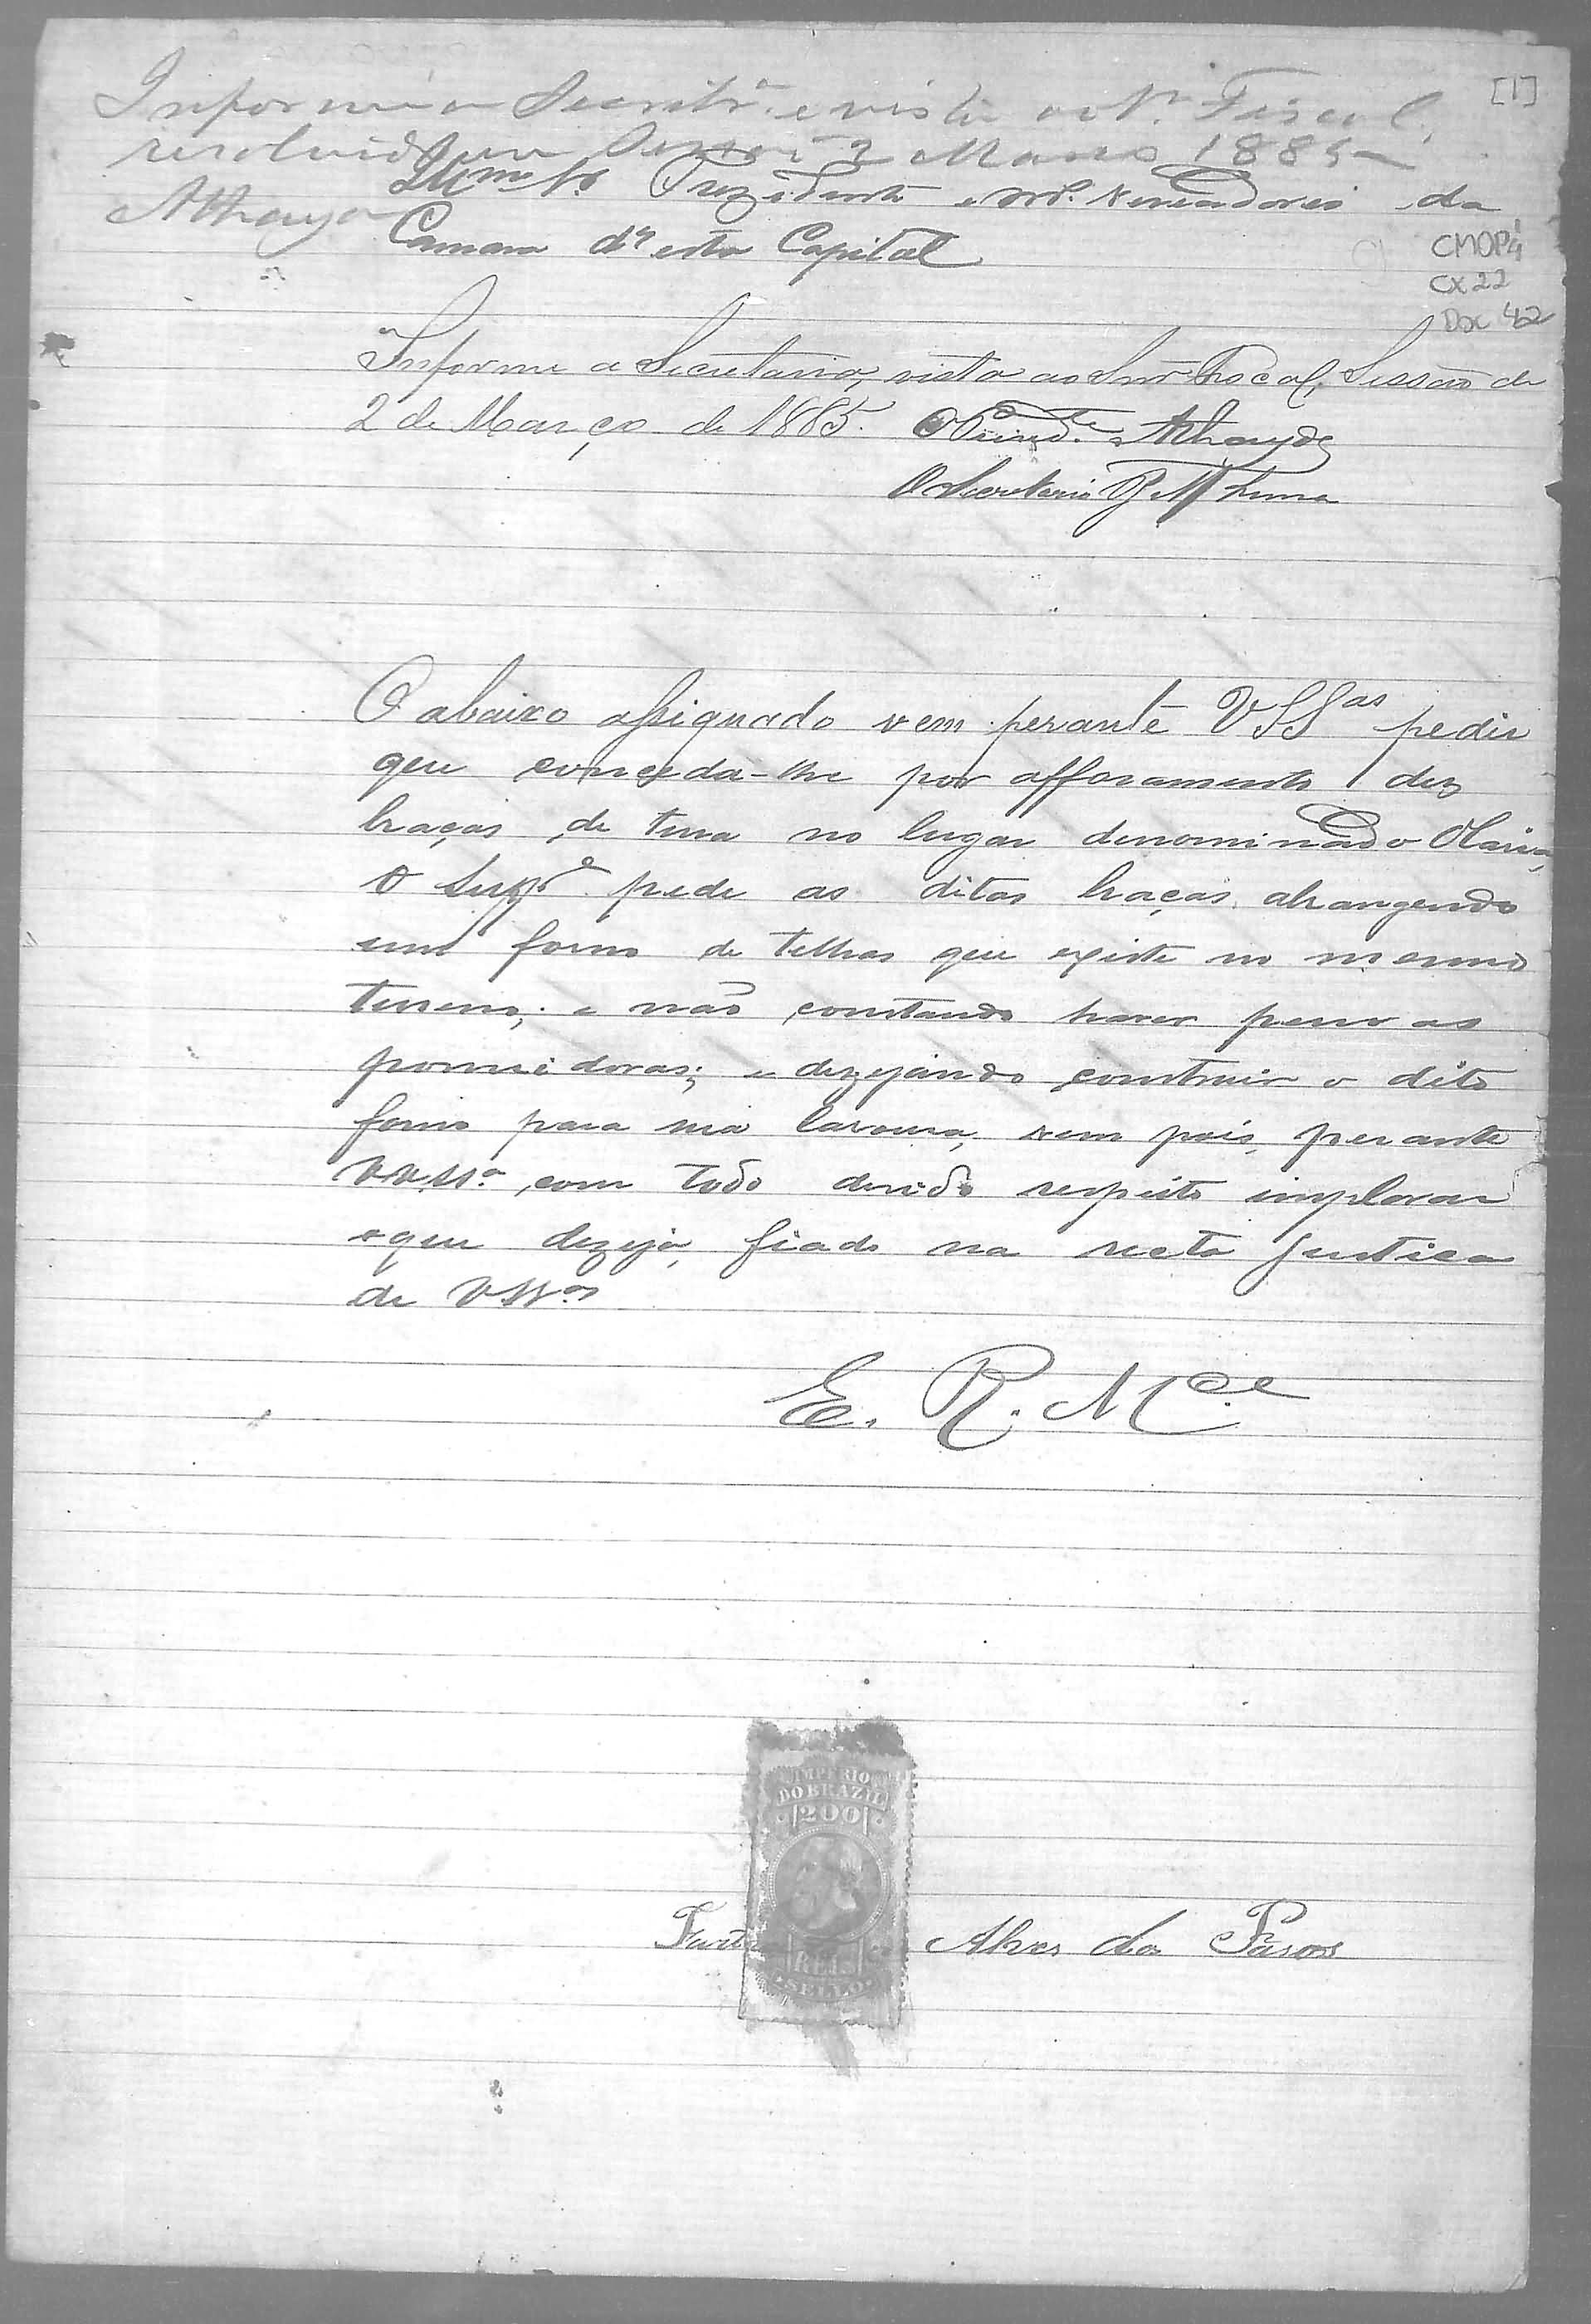 [1]
Informe a Secretrª. e vista ao Sr. Fiscal,
resolvido em Sessão 2 Março 1885
Athayde
Illmo. Sr. Prezidente e mrs. Vereadores da
Camara d'esta Capital
CMOP4
CX 22
Doc 42
Informe a Secretaria, vista ao Snr Fiscal, Sessão de
2 de Março de 1885. O Presid.te Athayde
O Secretario
O abaixo assignado vem perante VSSas pedir
que conceda-lhe por afforamento dez
braças de terra no lugar denominado Olaria,
O Suppe. pede as ditas braças abrangendo
um forno de telhas que existe no mesmo
terreno; e não constando haver
; e dezejando construir o dito
forno para sua lavoura, vem pois, perante
VVSSas. com todo devido respeito implorar
o que dezeja, fiado na recta justica
de VSSas
E. R. Mce.
IMPERIO
DO BRAZIL
200
REIS
SELLO
Alves da